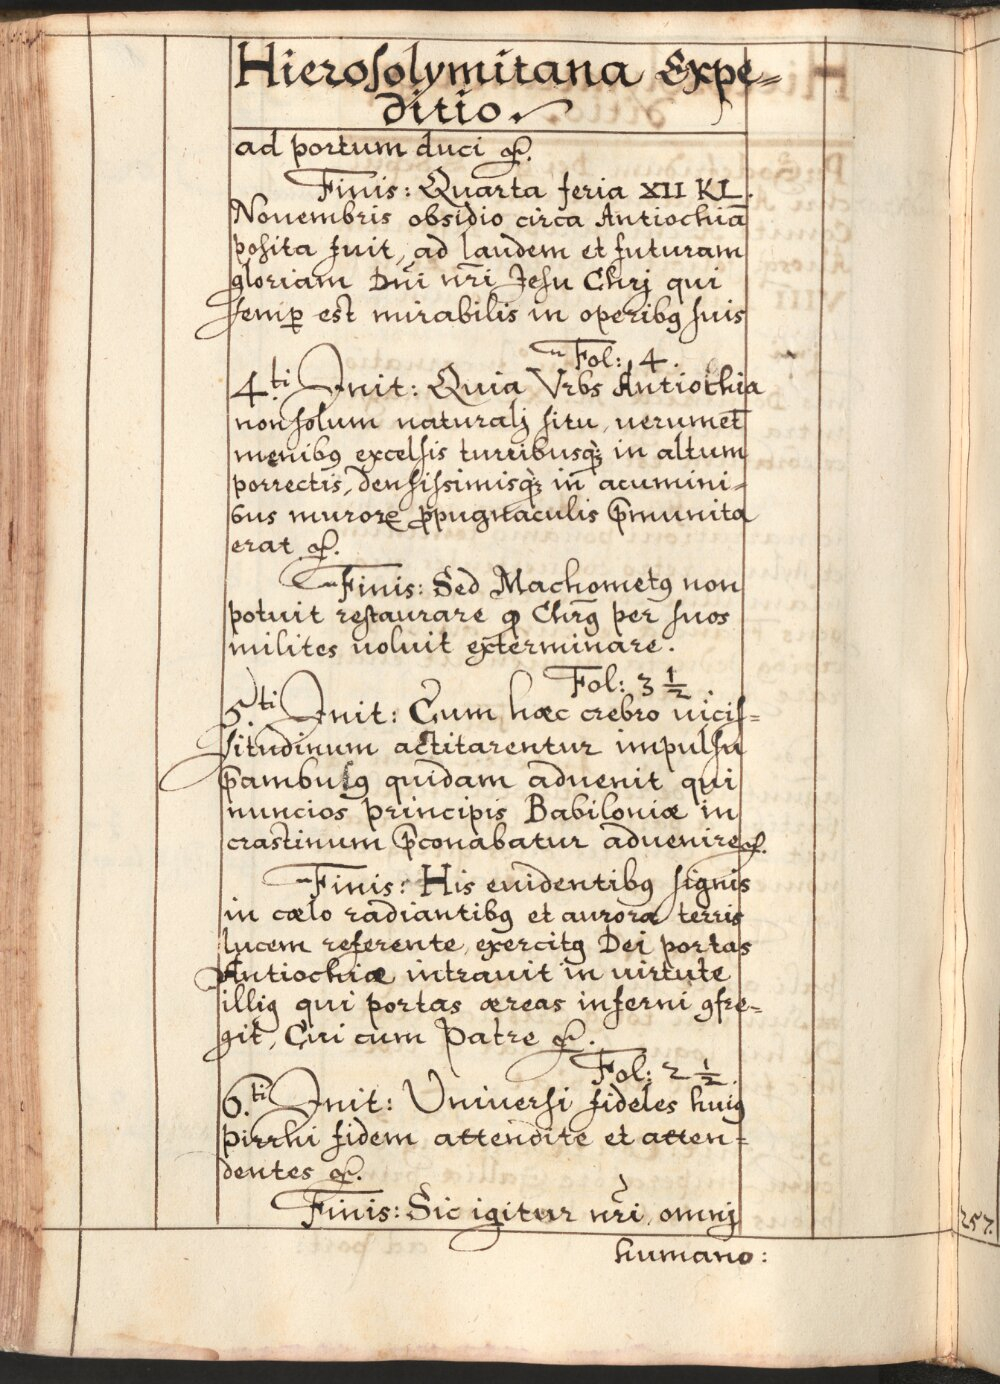 Hierosolymitana Expe=
ditio.
ad portum duci &.
Finis: Quarta feria XII KL.
Nouembris obsidio circa Antiochiā
posita fuit, ad laudem et futuram
gloriam Dn̄i nr̄i Jesu Chrj qui
semp̱ est mirabilis in operibꝰ suis
Fol: 4.
4.ti Init: Quia Vrbs Antiochia
non solum naturalj situ, uerumet̄
menibꝰ excelsis turribusqꝫ in altum
porrectis, densissimisqꝫ in acumini=
bus muroꝝ ꝓpugnaculis p̄munita
erat &.
Finis: Sed Machometꝰ non
potuit restaurare qđ Chrꝰ per suos
milites uoluit exterminare.
Fol: 3 1/2.
5.ti Init: Cum hæc crebro uicis=
situdinum actitarentur impulsu
p̄ambulꝰ quidam aduenit qui
nuncios principis Babiloniæ in
crastinum p̄conabatur aduenire &.
Finis: His euidentibꝰ signis
in cælo radiantibꝰ et aurora terris
lucem referente, exercitꝰ Dei portas
Antiochiæ intrauit in uirtute
illiꝰ qui portas æreas inferni ꝯfre=
git, Cui cum Patre &.
Fol: 2 1/2.
6.ti Init: Uniuersi fideles huiꝰ
pirrhi fidem attendite et atten=
dentes &.
Finis: Sic igitur nr̄i, omnj
humano:
257.